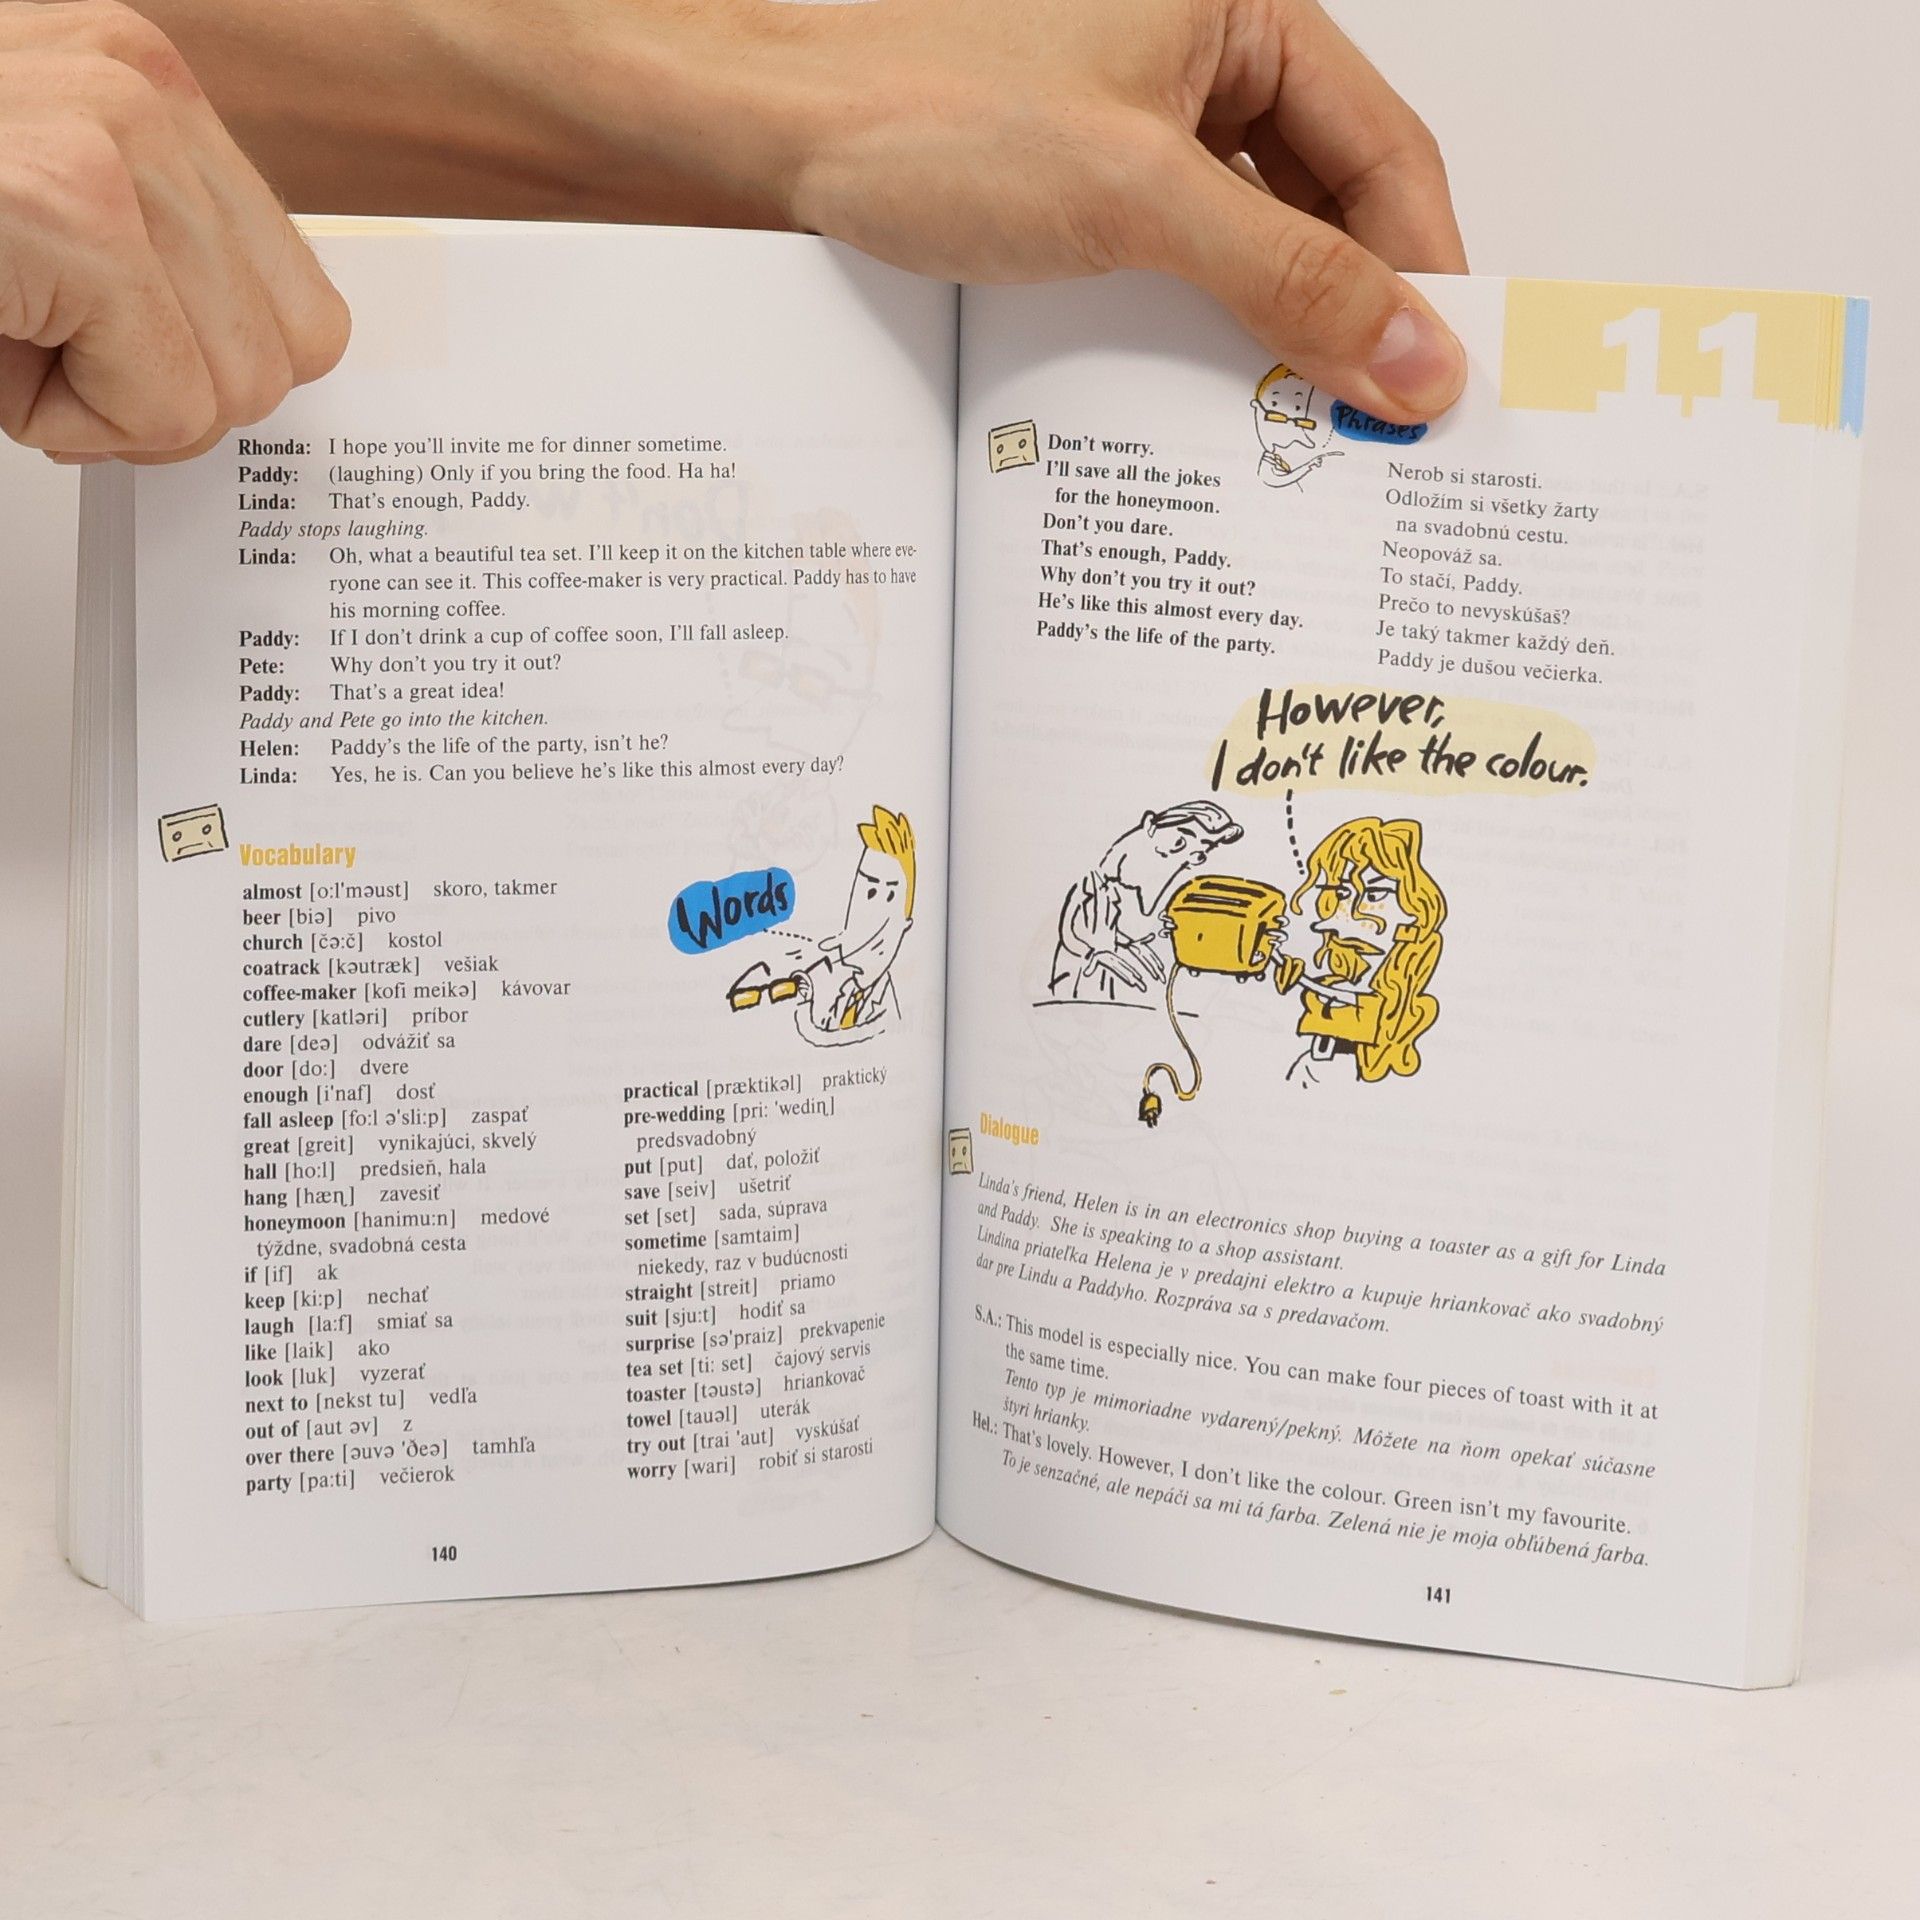 Rhonda: I hope you'll invite me for dinner sometime.
Paddy: (laughing) Only if you bring the food. Ha ha!
Linda: That's enough, Paddy.
Paddy stops laughing.
Linda: Oh, what a beautiful tea set. I'll keep it on the kitchen table where eve-
ryone can see it. This coffee-maker is very practical. Paddy has to have
his morning coffee.
Paddy: If I don't drink a cup of coffee soon, I'll fall asleep.
Pete: Why don't you try it out?
Paddy: That's a great idea!
Paddy and Pete go into the kitchen.
Helen: Paddy's the life of the party, isn't he?
Linda: Yes, he is. Can you believe he's like this almost every day?
Vocabulary
almost [o:l'məust] skoro, takmer
beer [biə] pivo
church [čə:č] kostol
coatrack [kəutræk] vešiak
coffee-maker [kofi meikə] kávovar
cutlery [katləri] príbor
dare [deə] odvážiť sa
door [do:] dvere
enough [i'naf] dosť
fall asleep [fo:l ə'sli:p] zaspať
great [greit] vynikajúci, skvelý
hall [ho:l] predsieň, hala
hang [hæɳ] zavesiť
honeymoon [hanimu:n] medové
týždne, svadobná cesta
if [if] ak
keep [ki:p] nechať
laugh [la:f] smiať sa
like [laik] ako
look [luk] vyzerať
next to [nekst tu] vedľa
out of [aut əv] z
over there [əuvə 'ðeə] tamhľa
party [pa:ti] večierok
Words
practical [præktikəl] praktický
pre-wedding [pri: 'wediɳ]
predsvadobný
put [put] dať, položiť
save [seiv] ušetriť
set [set] sada, súprava
sometime [samtaim]
niekedy, raz v budúcnosti
straight [streit] priamo
suit [sju:t] hodiť sa
surprise [sə'praiz] prekvapenie
tea set [ti: set] čajový servis
toaster [təustə] hriankovač
towel [tauəl] uterák
try out [trai 'aut] vyskúšať
worry [wari] robiť si starosti
140
11
Phrases
Don't worry.
I'll save all the jokes
for the honeymoon.
Don't you dare.
That's enough, Paddy.
Why don't you try it out?
He's like this almost every day.
Paddy's the life of the party.
Nerob si starosti.
Odložím si všetky žarty
na svadobnú cestu.
Neopováž sa.
To stačí, Paddy.
Prečo to nevyskúšaš?
Je taký takmer každý deň.
Paddy je dušou večierka.
However,
I don't like the colour.
Dialogue
Linda's friend, Helen is in an electronics shop buying a toaster as a gift for Linda
and Paddy. She is speaking to a shop assistant.
Lindina priateľka Helena je v predajni elektro a kupuje hriankovač ako svadobný
dar pre Lindu a Paddyho. Rozpráva sa s predavačom.
S.A.: This model is especially nice. You can make four pieces of toast with it at
the same time.
Tento typ je mimoriadne vydarený/pekný. Môžete na ňom opekať súčasne
štyri hrianky.
Hel.: That's lovely. However, I don't like the colour. Green isn't my favourite.
To je senzačné, ale nepáči sa mi tá farba. Zelená nie je moja obľúbená farba.
141